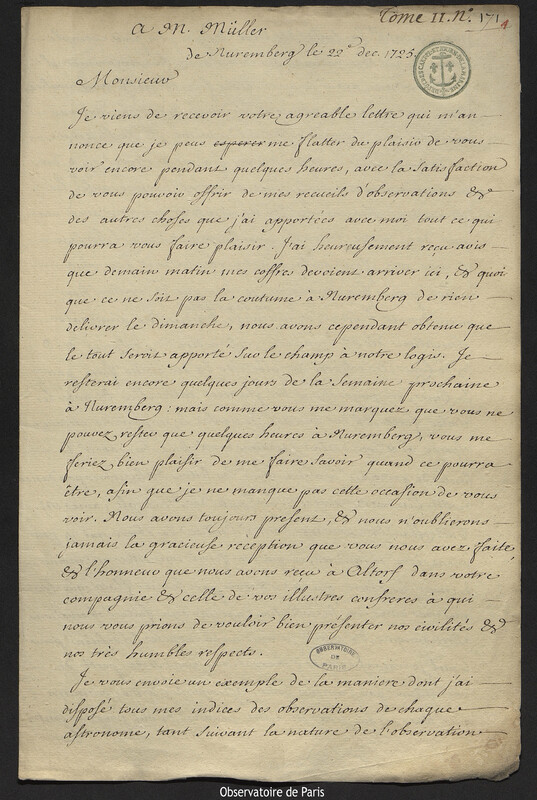 Tome II. N.º 171
A M. Müller
de Nuremberg le 22ᵉ dec. 1725.
Monsieur
Je viens de recevoir votre agreable lettre qui m'an-
nonce que je peus esperer me flatter du plaisir de vous
voir encore pendant quelques heures, avec la satisfaction
de vous pouvoir offrir de mes recueils d'observations &
des autres choses que j'ai apportées avec moi tout ce qui
pourra vous faire plaisir. J'ai heureusement reçu avis
que demain matin mes coffres devoient arriver ici, & quoi
que ce ne soit pas la coutume à Nuremberg de rien
delivrer le dimanche, nous avons cependant obtenu que
le tout seroit apporté sur le champ à notre logis. Je
resterai encore quelques jours de la semaine prochaine
à Nuremberg: mais comme vous me marquez que vous ne
pouvez rester que quelques heures à Nuremberg, vous me
feriez bien plaisir de me faire savoir quand ce pourra
être, afin que je ne manque pas cette occasion de vous
voir. Nous avons toujours present, & nous n'oublierons
jamais la gracieuse réception que vous nous avez faite,
& l'honneur que nous avons reçu à Altorf dans votre
compagnie & celle de vos illustres confreres à qui
nous vous prions de vouloir bien présenter nos civilités &
nos très humbles respects.
OBSERVATOIRE
DE
PARIS
Je vous envoie un exemple de la maniere dont j'ai
disposé tous mes indice des observations de chaque
astronome, tant suivant la nature de l'observation
Observatoire de Paris